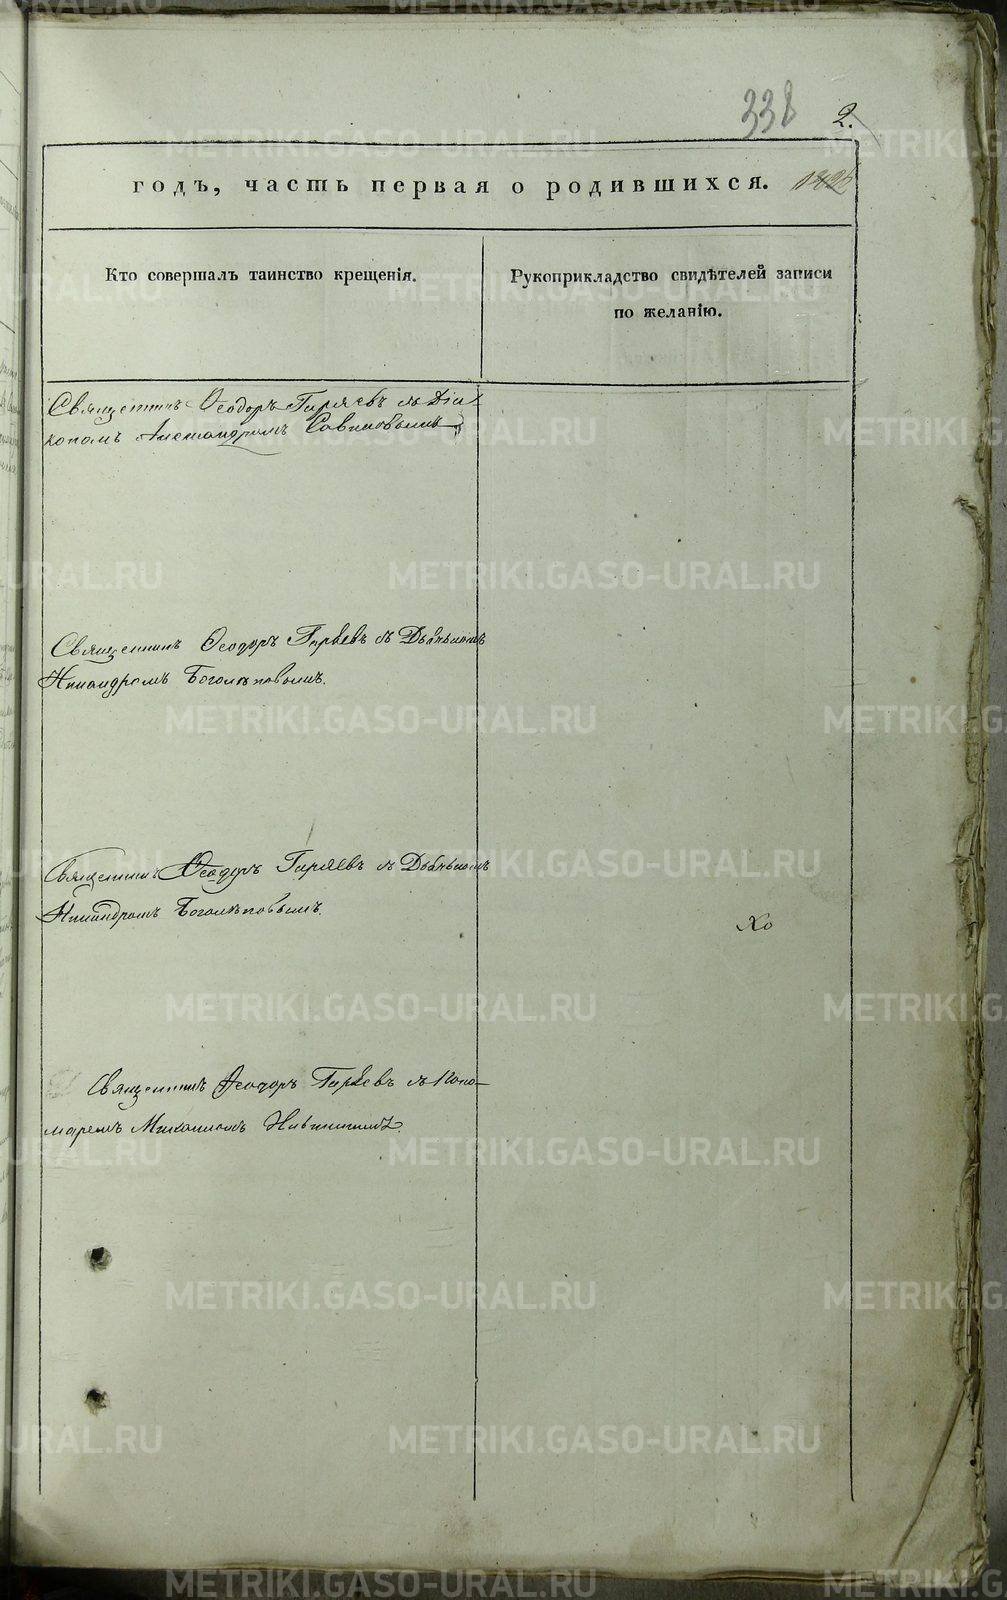 338 2.
годъ, часть первая о родившихся.
Кто совершалъ таинство крещенія.
Рукоприкладство свидѣтелей записи
по желанію.
Священникъ Ѳеодоръ Гиряевъ съ Діа-
кономъ Александромъ Савиновымъ
Священникъ Ѳеодоръ Гиряевъ съ Дьячькомъ
Никандромъ Боголѣповымъ.
Священникъ Ѳеодоръ Гиряевъ съ Дьячькомъ
Никандромъ Боголѣповымъ.
Хо
Священникъ Ѳеодоръ Гиряевъ съ Поно-
маремъ Михаиломъ
METRIKI.GASO-URAL.RU